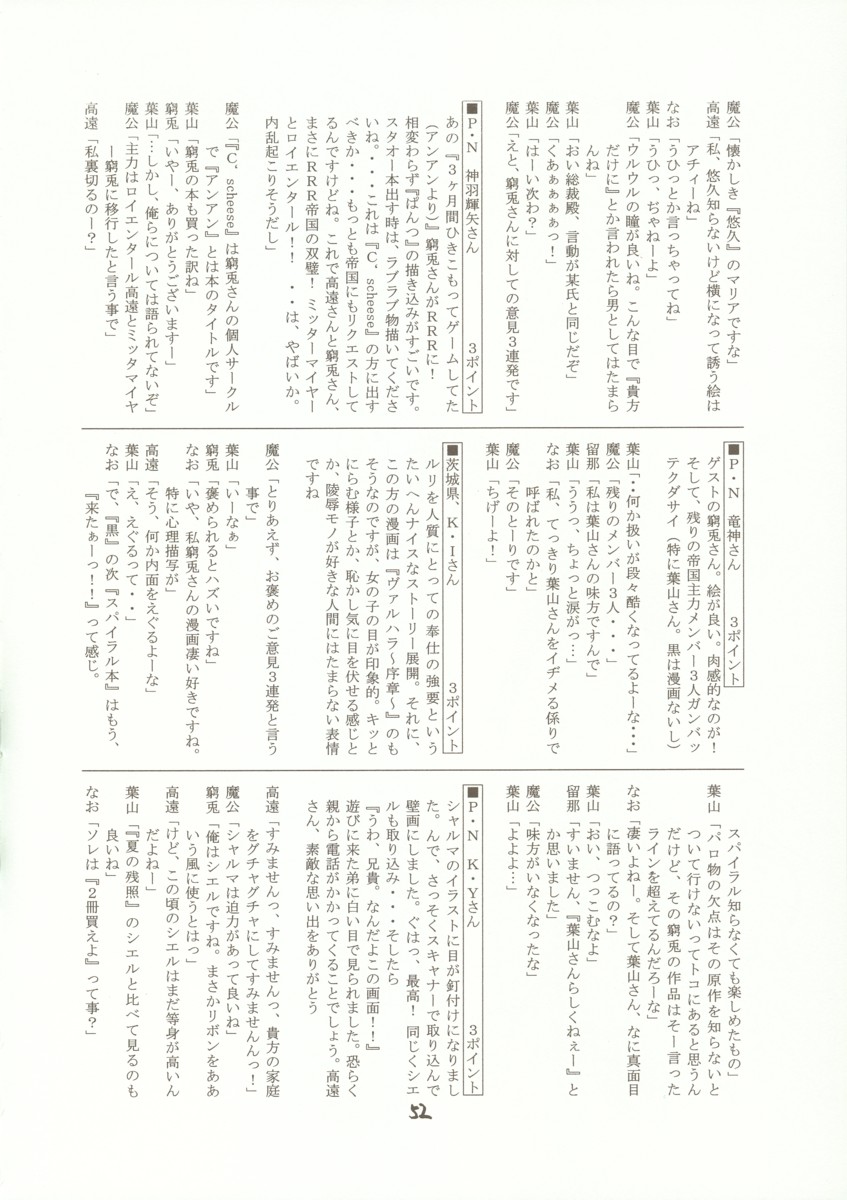 魔公「懐かしき『悠久』のマリアですな」
高遠「私、悠久知らないけど横になって誘う絵は
アチィーね」
なお「うひっとか言っちゃってね」
葉山「うひっ、ぢゃねーよ」
魔公「ウルウルの瞳が良いね。こんな目で『貴方
だけに』とか言われたら男としてはたまら
んね」
葉山「おい総裁殿、言動が某氏と同じだぞ」
魔公「くあぁぁぁぁっ！」
葉山「はーい次わ？」
魔公「えと、窮兎さんに対しての意見３連発です」
■Ｐ・Ｎ　神羽輝矢さん　３ポイント
あの『３ヶ月間ひきこもってゲームしてた
（アンアンより）』窮兎さんがＲＲＲに！
相変わらず『ぱんつ』の描き込みがすごいです。
スタオー本出す時は、ラブラブ物描いてくださ
いね。・・・これは『Ｃ，scheese』の方に出す
べきか・・・もっとも帝国にもリクエストして
るんですけどね。これで高遠さんと窮兎さん、
まさにＲＲＲ帝国の双璧！　ミッターマイヤー
とロイエンタール！！　・・は、やばいか。
内乱起こりそうだし」
魔公「『Ｃ，scheese』は窮兎さんの個人サークル
で『アンアン』とは本のタイトルです」
葉山「窮兎の本も買った訳ね」
窮兎「いやー、ありがとうございますー」
葉山「…しかし、俺らについては語られてないぞ」
魔公「主力はロイエンタール高遠とミッタマイヤ
ー窮兎に移行したと言う事で」
高遠「私裏切るのー？」
■Ｐ・Ｎ　竜神さん　３ポイント
ゲストの窮兎さん。絵が良い。肉感的なのが！
そして、残りの帝国主力メンバー３人ガンバッ
テクダサイ（特に葉山さん。黒は漫画ないし）
葉山「・・何か扱いが段々酷くなってるよーな・・・」
魔公「残りのメンバー３人・・・」
留那「私は葉山さんの味方ですんで」
葉山「ううっ、ちょっと涙がっ…」
なお「私、てっきり葉山さんをイヂメる係りで
呼ばれたのかと」
魔公「そのとーりです」
葉山「ちげーよ！」
■茨城県、Ｋ・Ｉさん　３ポイント
ルリを人質にとっての奉仕の強要という
たいへんナイスなストーリー展開。それに、
この方の漫画は『ヴァルハラ～序章～』のも
そうなのですが、女の子の目が印象的。キッと
にらむ様子とか、恥かし気に目を伏せる感じと
か、陵辱モノが好きな人間にはたまらない表情
ですね
魔公「とりあえず、お褒めのご意見３連発と言う
事で」
葉山「いーなぁ」
窮兎「褒められるとハズいですね」
なお「いや、私窮兎さんの漫画凄い好きですね。
特に心理描写が」
高遠「そう、何か内面をえぐるよーな」
葉山「え、えぐるって・・」
なお「で、『黒』の次『スパイラル本』はもう、
『来たぁーっ！！』って感じ。
スパイラル知らなくても楽しめたもの」
葉山「パロ物の欠点はその原作を知らないと
ついて行けないってトコにあると思うん
だけど、その窮兎の作品はそー言った
ラインを超えてるんだろーな」
なお「凄いよねー。そして葉山さん、なに真面目
に語ってるの？」
葉山「おい、つっこむなよ」
留那「すいません、『葉山さんらしくねぇー』と
か思いました」
魔公「味方がいなくなったな」
葉山「よよよ…」
■Ｐ・Ｎ　Ｋ・Ｙさん　３ポイント
シャルマのイラストに目が釘付けになりまし
た。んで、さっそくスキャナーで取り込んで
壁画にしました。ぐはっ、最高！　同じくシエ
ルも取り込み・・・そしたら
『うわ、兄貴。なんだよこの画面！！』
遊びに来た弟に白い目で見られました。恐らく
親から電話がかかってくることでしょう。高遠
さん、素敵な思い出をありがとう
高遠「すみませんっ、すみませんっ、貴方の家庭
をグチャグチャにしてすみませんんっ！」
魔公「シャルマは迫力があって良いね」
窮兎「俺はシエルですね。まさかリボンをああ
いう風に使うとはっ」
高遠「けど、この頃のシエルはまだ等身が高いん
だよねー」
葉山「『夏の残照』のシエルと比べて見るのも
良いね」
なお「ソレは『２冊買えよ』って事？」
52